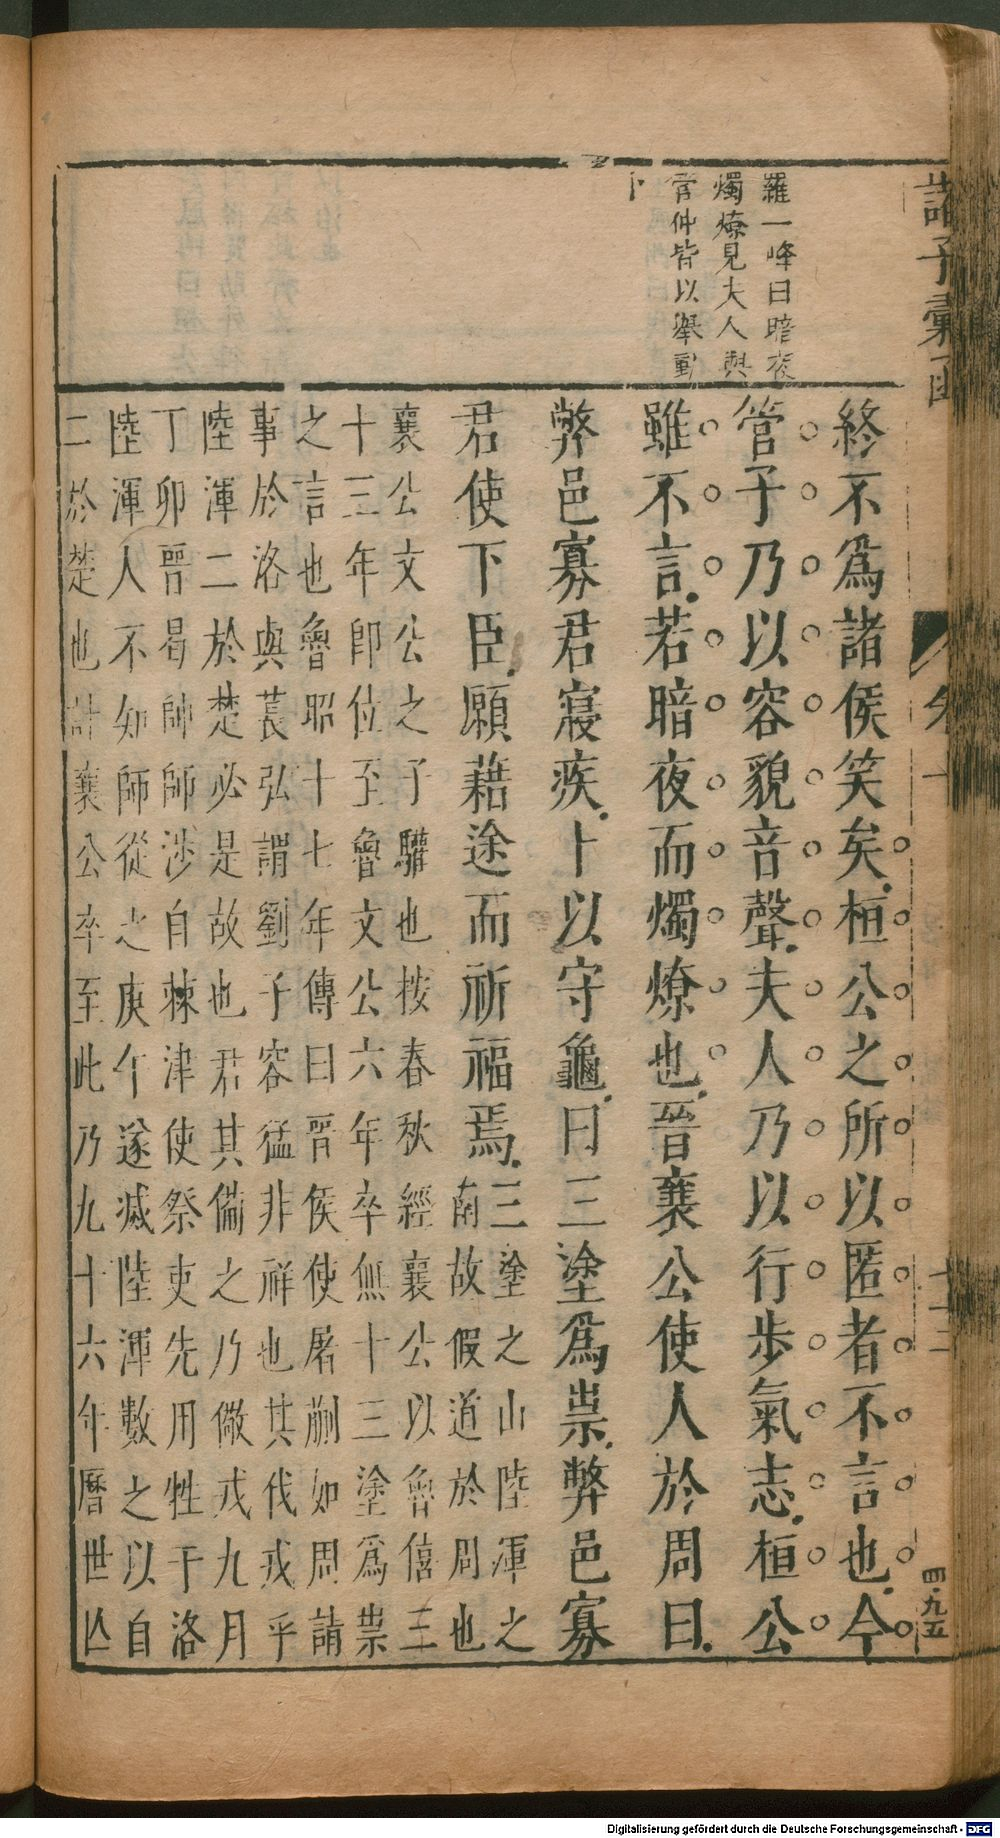 諸子彙函
羅一峰曰暗夜
燭燎見夫人與
管仲皆以舉動
卜
終不爲諸侯笑矣桓公之所以匿者不言也今
管子乃以容貌音聲夫人乃以行步氣志桓公
雖不言若暗夜而燭燎也晉襄公使人於周曰
弊邑寡君寢疾卜以守龜曰三塗爲祟弊邑寡
君使下臣願藉途而祈福焉
三塗之山陸渾之
南故假道於周也
襄公文公之子驩也按春秋經襄公以魯僖三
十三年卽位至魯文公六年卒無十三塗爲祟
之言也魯昭十七年傳曰晉侯使屠蒯如周請
事於洛與萇弘謂劉子容猛非祥也其伐戎乎
陸渾二於楚必是故也君其備之乃儆戎九月
丁卯晉荀帥師涉自棘津使祭吏先用牲于洛
陸渾人不知師從之庚午遂滅陸渾數之以自
二於楚也計襄公卒至此乃九十六年曆世亾
十二
四九五
Digitalisierung gefördert durch die Deutsche Forschungsgemeinschaft - DFG